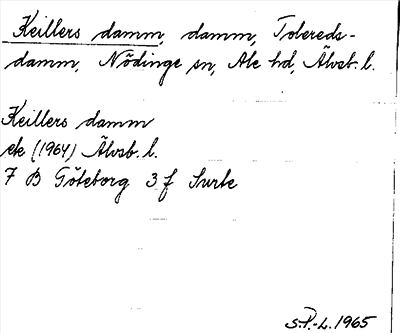 Keillers damm, damm, Tolereds-
damm, Nödinge sn, Ale hd, Älvsb. l.
Keillers damm
ek (1964) Älvsb. l.
7 B Göteborg 3 f Surte
S.P.-L. 1965